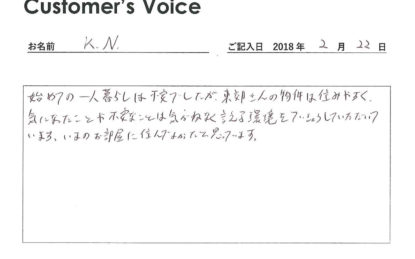 Customer's Voice
お名前 K.N. ご記入日 2018 年 2 月 22 日
始めての一人暮らしは不安でしたが、東郊さんの物件は住みやすく、
気になったことや不安なことは気がねなく言える環境をていきょうしていただいて
います。いまのお部屋に住んでよかったと思っています。